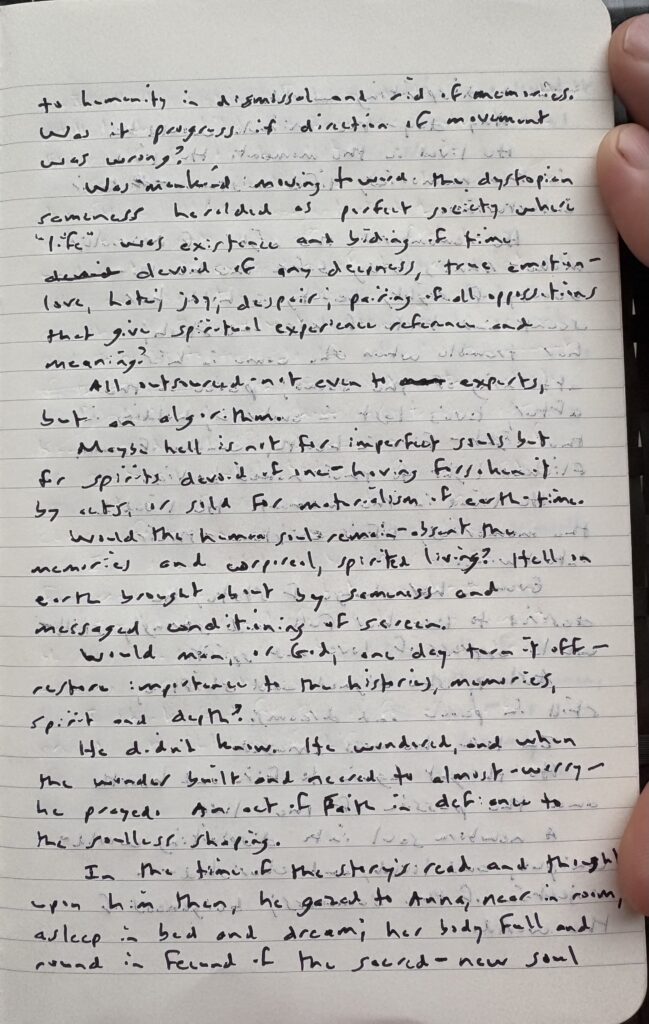 to humanity in dismissal and rid of memories.
Was it progress if direction of movement
was wrong?
Was mankind moving toward the dystopian
sameness heralded as perfect society where
"life" was existence and biding of time
devoid devoid of any deepness, true emotion-
love, hate, joy, despair; pairing of all oppositions
that give spiritual experience reference and
meaning?
All outsourced-not even to experts,
but an algorithm.
Maybe hell is not for imperfect souls but
for spirits devoid of one-having forsaken it
by acts, or sold for materialism of earth-time.
Would the human soul remain-absent the
memories and corporeal, spirited living? Hell on
earth brought about by sameness and
messaged conditioning of screen.
Would man, or God, one day turn it off-
restore importance to the histories, memories,
spirit and depth?
He didn't know. He wondered, and when
the wonder built and neared to almost-worry-
he prayed. An act of Faith in defience to
the soulless shaping.
In the time of the story's read and thought
upon him then, he gazed to Anna, near in room,
asleep in bed and dream; her body full and
round in fecund of the sacred-new soul